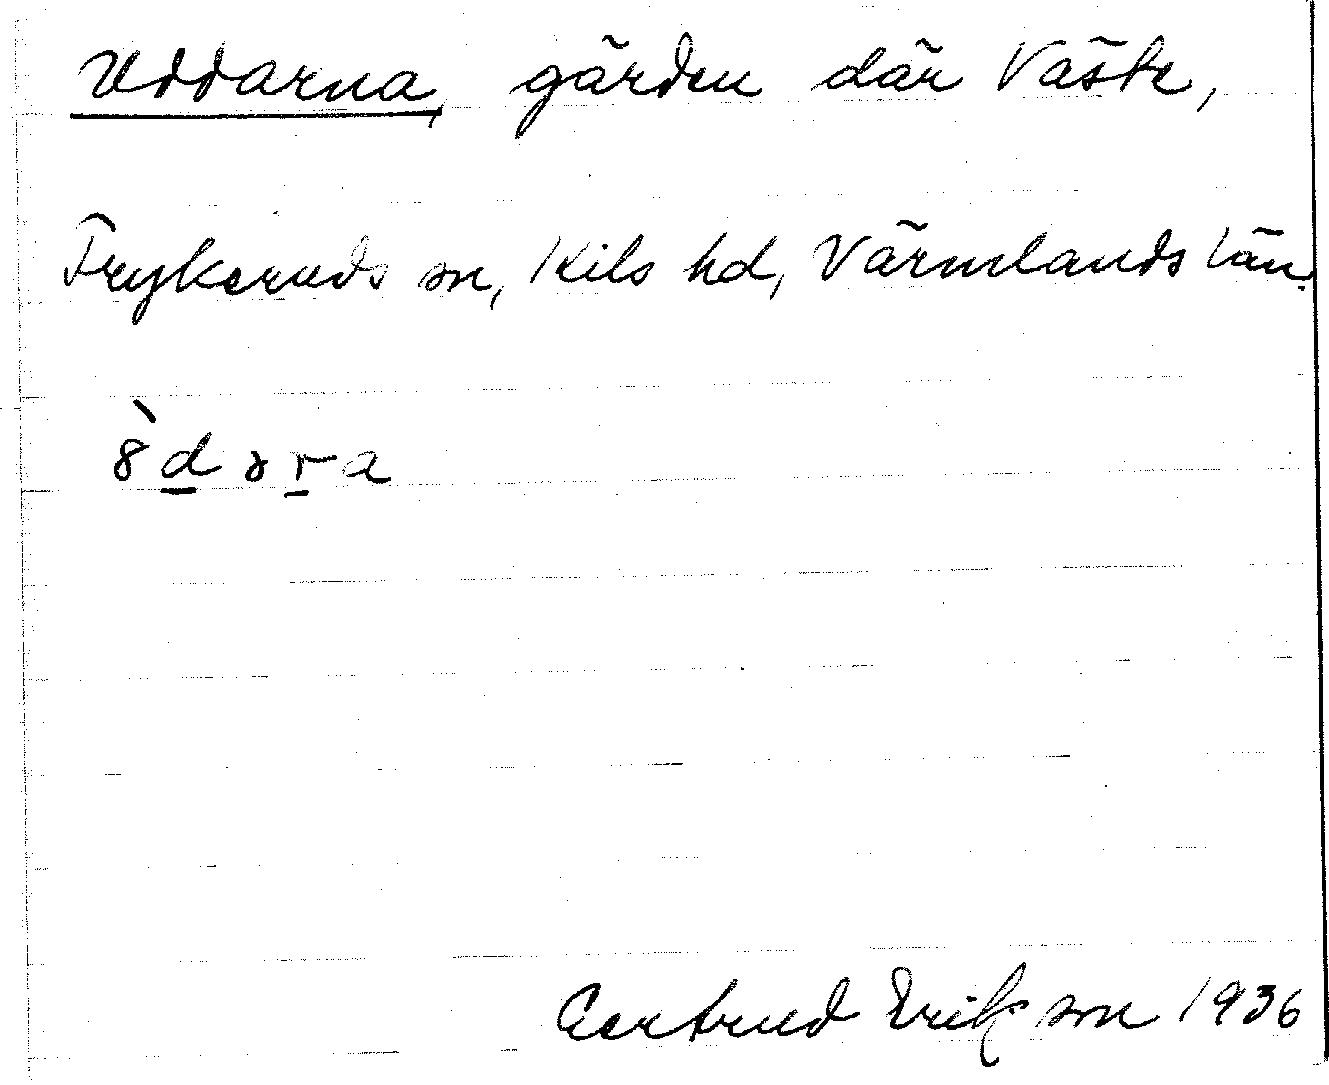 Uddarna, gärden där Väste,
Frykeruds sn, Kils hd, Värmlands län.
ȣ̀dȣra
Gertrud Erikson 1936